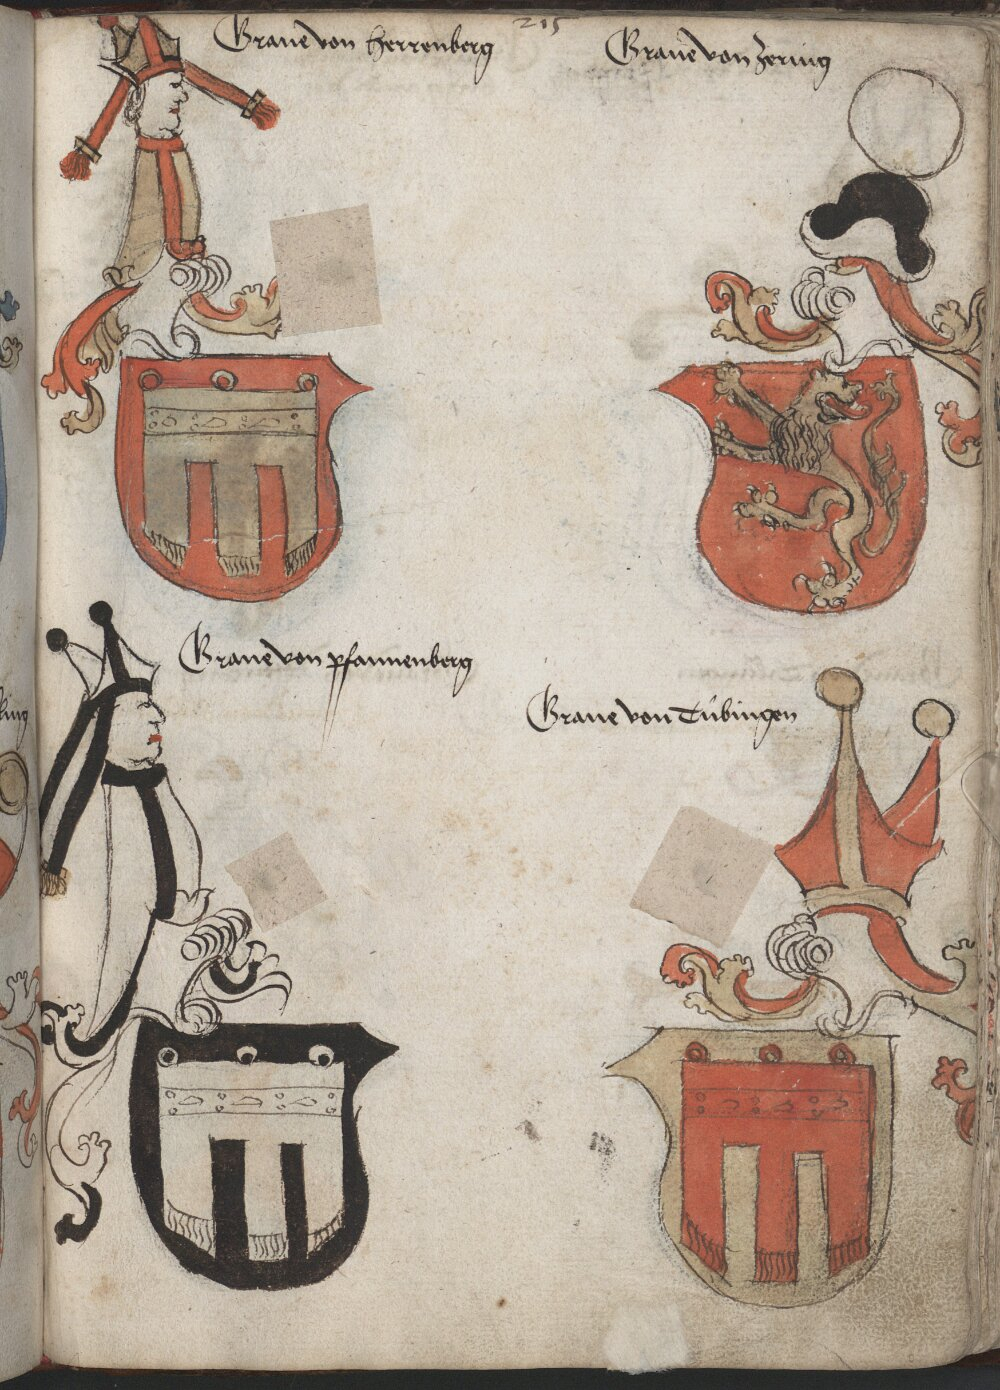 215
Graue von herrenberg
Graue von Zering
Graue von pfannenberg
Graue von Tübingen